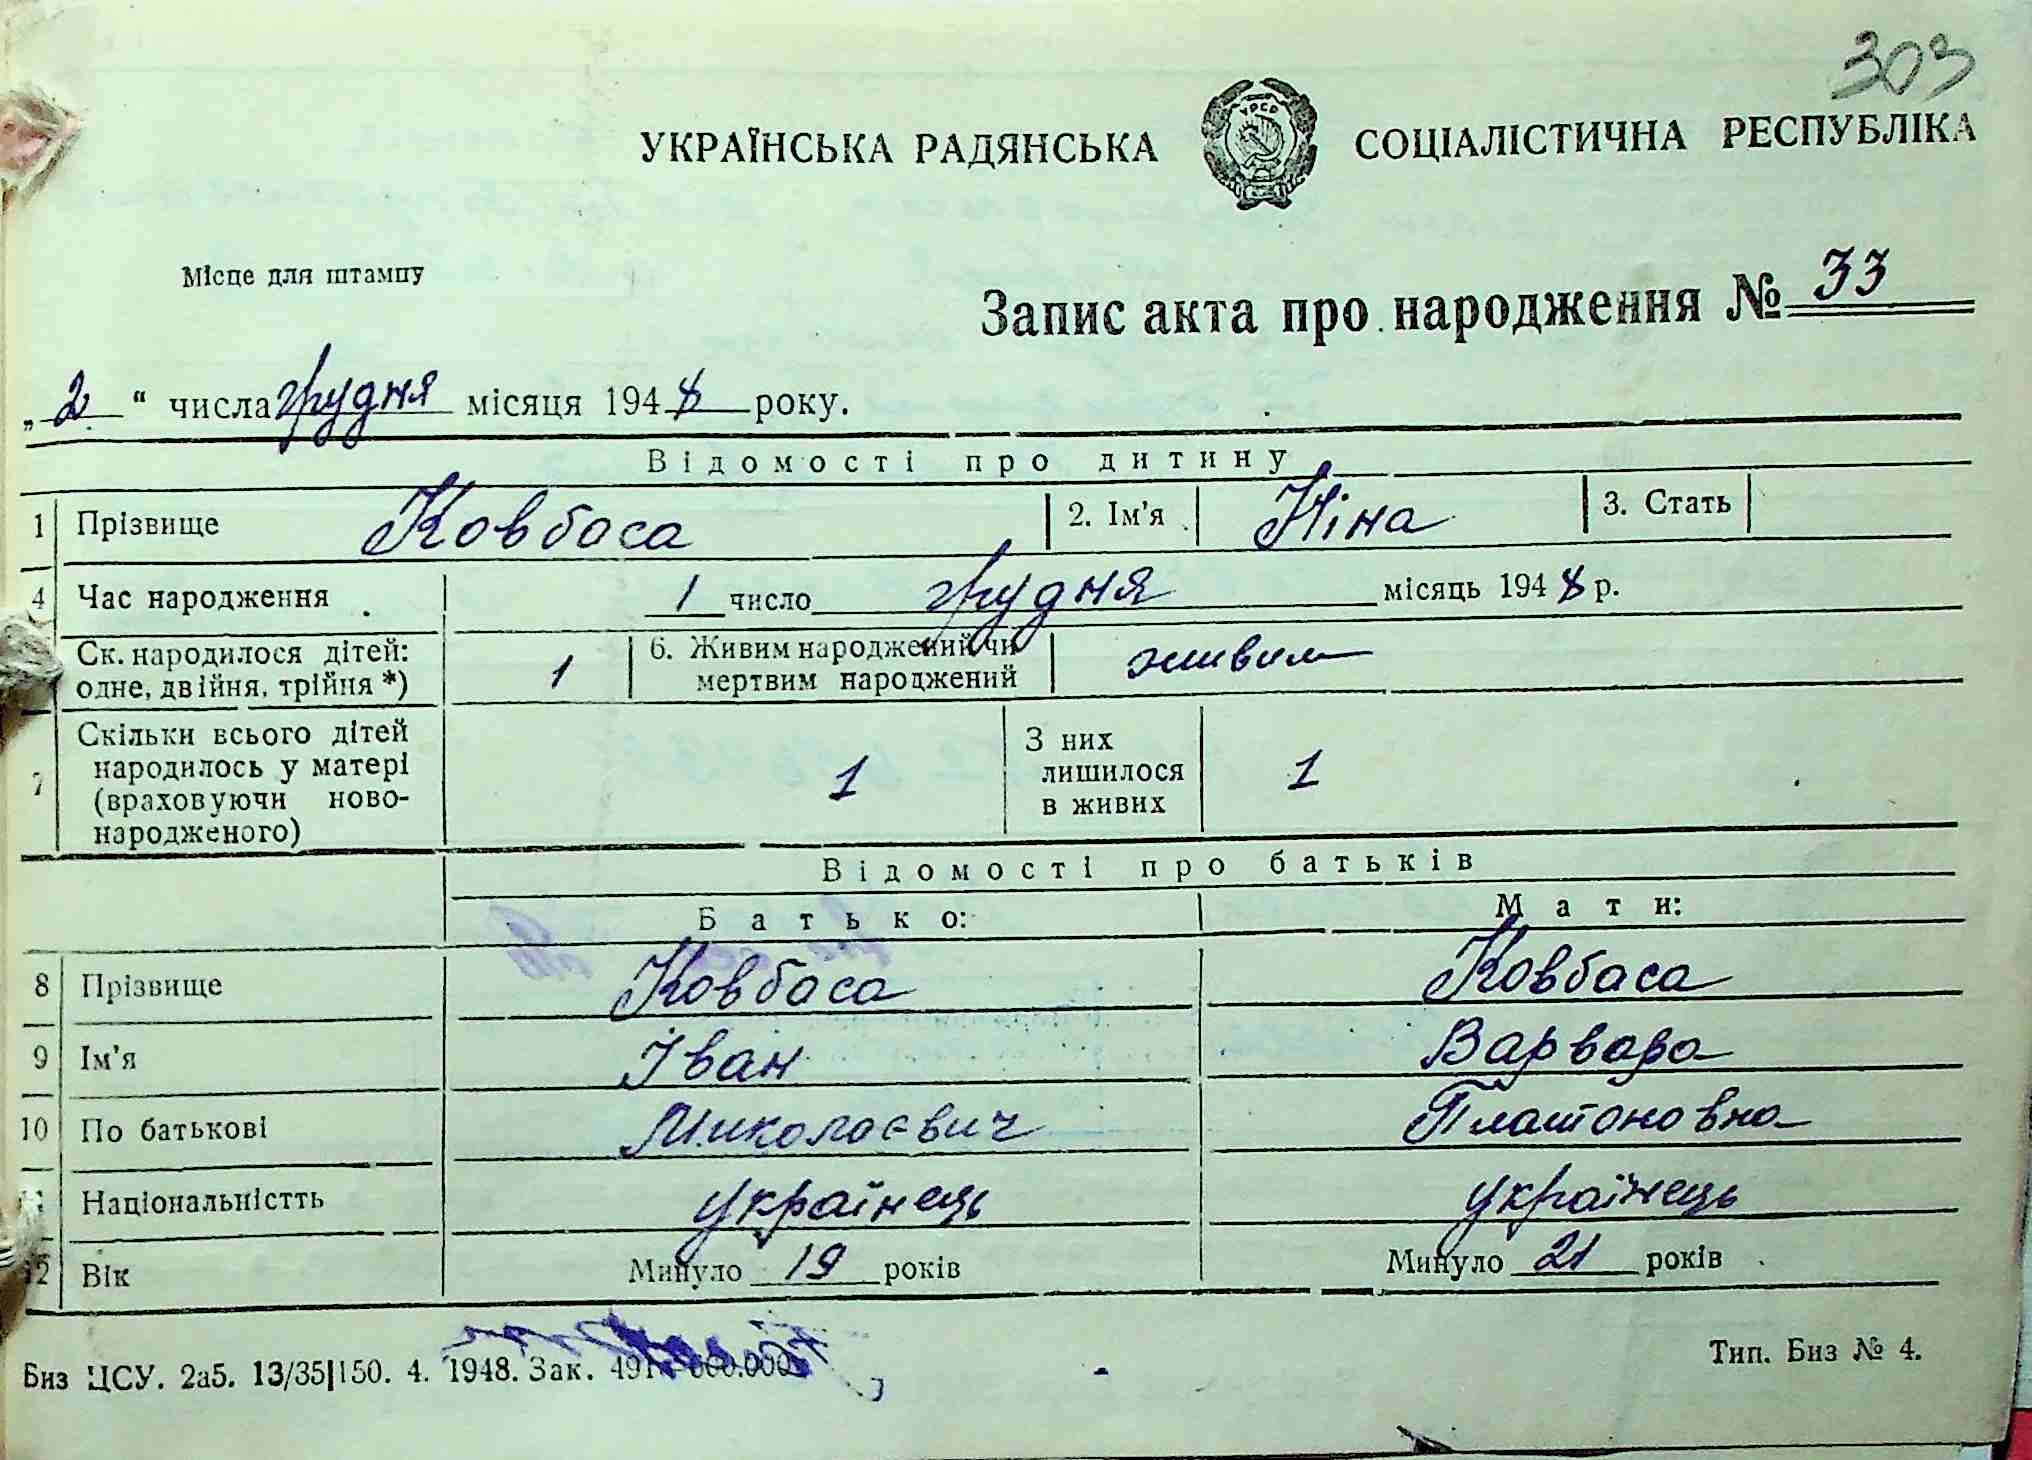 303
УКРАЇНСЬКА РАДЯНСЬКА СОЦІАЛІСТИЧНА РЕСПУБЛІКА
УРСР
Місце для штампу
Запис акта про народження № 33
„2“ числа грудня місяця 1948 року.
Відомості про дитину
1 Прізвище Ковбаса 2. Ім'я Ніна 3. Стать
4 Час народження 1 число грудня місяць 1948 р.
Ск. народилося дітей: одне, двійня, трійня *) 1 6. Живим народжений чи мертвим народжений живим
7 Скільки всього дітей народилось у матері (враховуючи ново-народженого) 1 З них лишилося в живих 1
Відомості про батьків
Батько: Мати:
8 Прізвище Ковбаса Ковбаса
9 Ім'я Іван Варвара
10 По батькові Миколаєвич Платоновна
11 Національністть українець українець
12 Вік Минуло 19 років Минуло 21 років
Биз ЦСУ. 2а5. 13/35|150. 4. 1948. Зак.
Тип. Биз № 4.